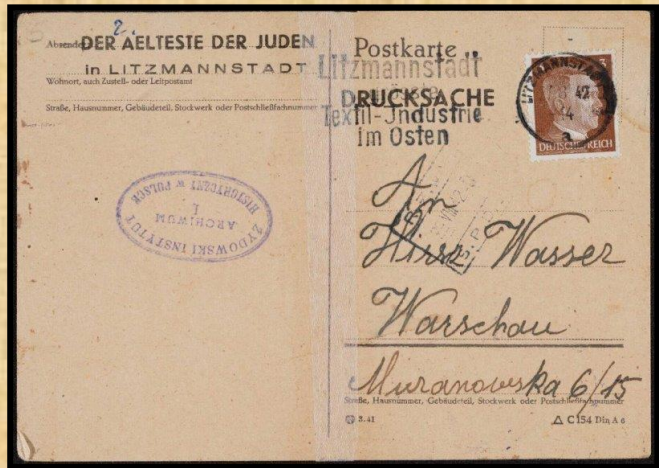 2.
Absender:
DER AELTESTE DER JUDEN
in LITZMANNSTADT
Wohnort, auch Zustell- oder Leitpostamt
Straße, Hausnummer, Gebäudeteil, Stockwerk oder Postschließfachnummer
ŻYDOWSKI INSTYTUT
HISTORYCZNY W POLSCE
ARCHIWUM
Postkarte
Litzmannstadt
DRUCKSACHE
Textil-Jndustrie
im Osten
LITZMANNSTADT
42
a
DEUTSCHES REICH
An
Hirsz Wasser
Warschau
Muranowska 6/15
Straße, Hausnummer, Gebäudeteil, Stockwerk oder Postschließfachnummer
3.41
C 154 Din A 6